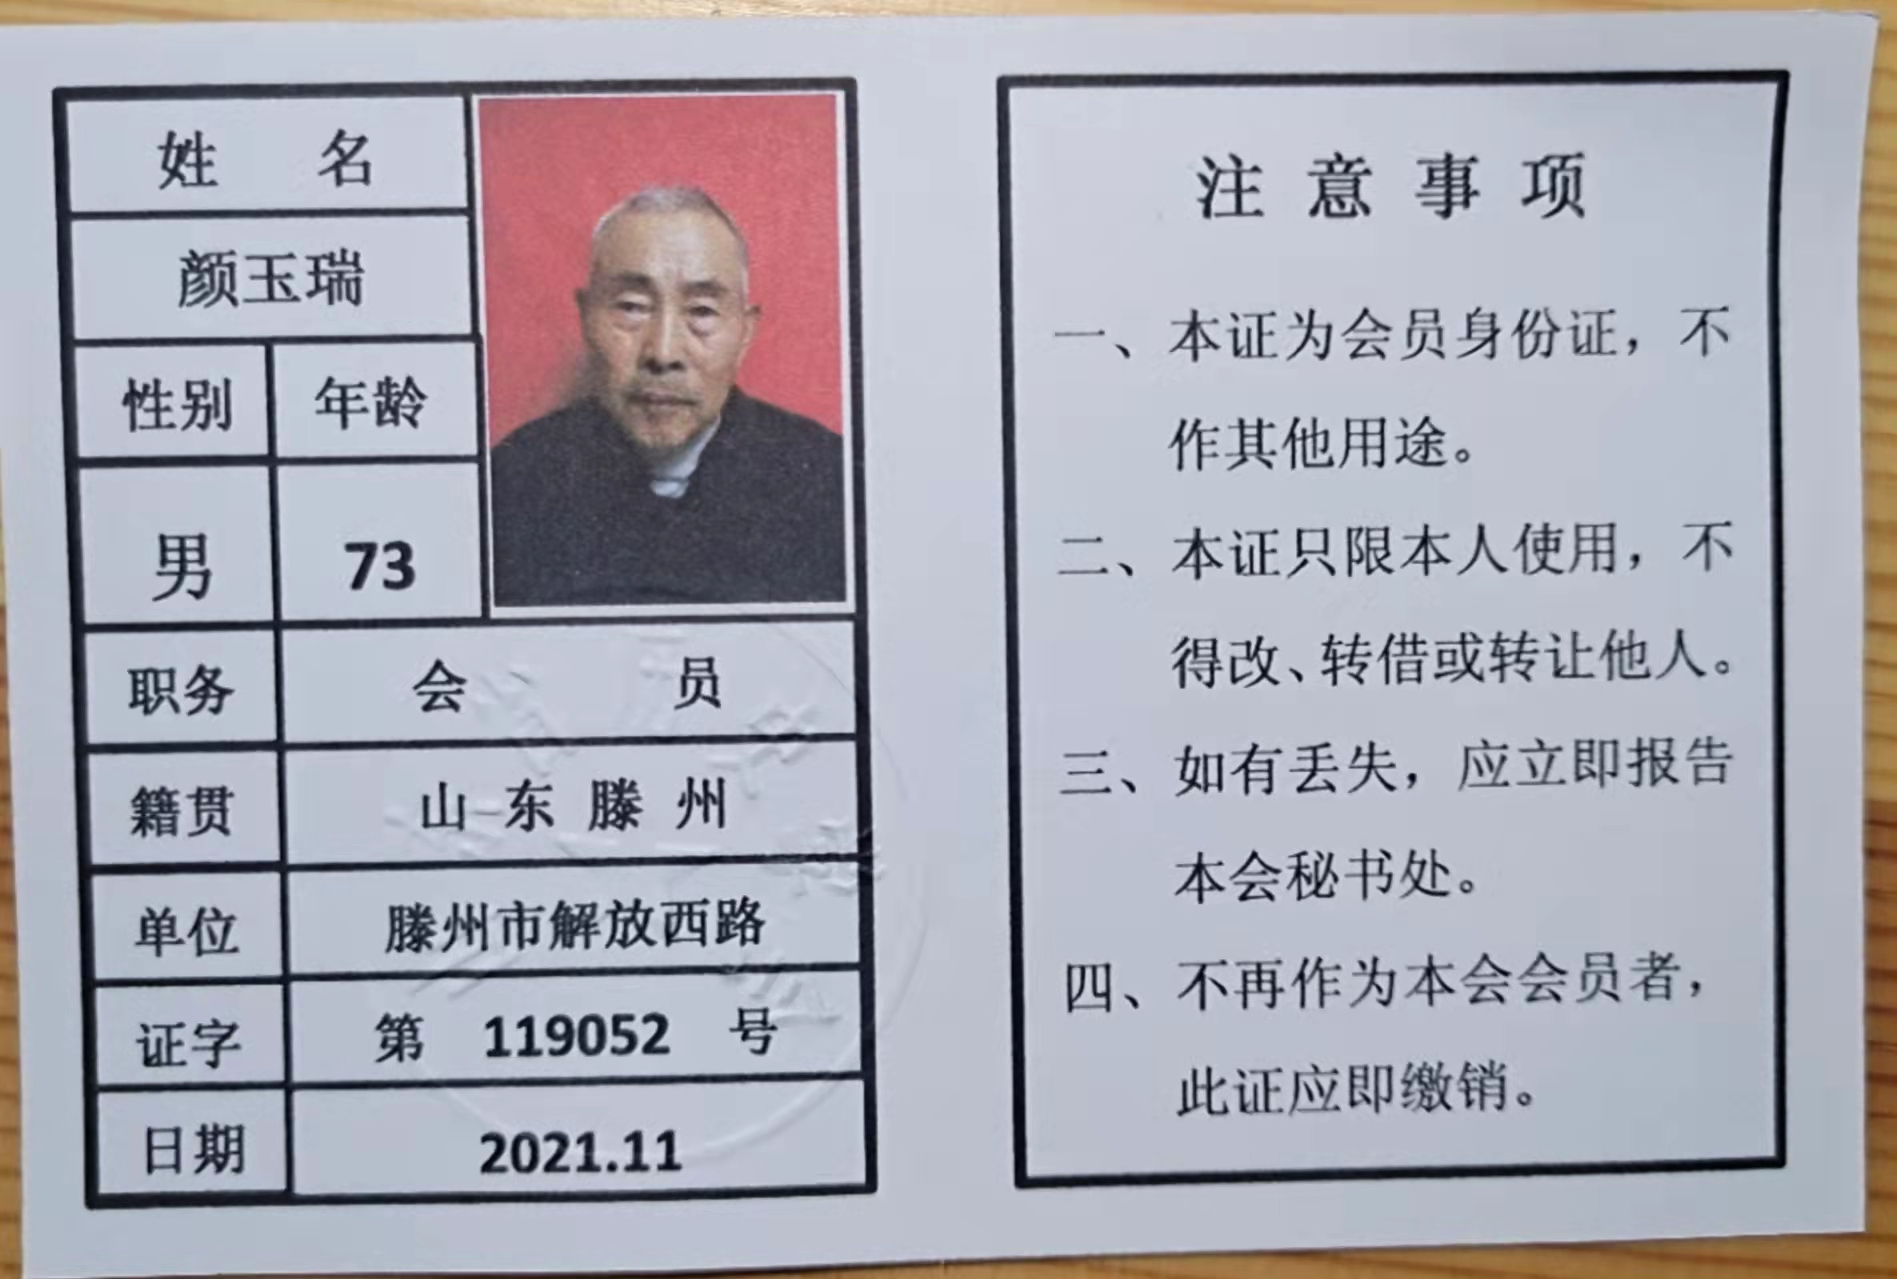 姓 名
颜玉瑞
性别 年龄
男 73
职务 会 员
籍贯 山东滕州
单位 滕州市解放西路
证字 第 119052 号
日期 2021.11
注意事项
一、本证为会员身份证，不
作其他用途。
二、本证只限本人使用，不
得改、转借或转让他人。
三、如有丢失，应立即报告
本会秘书处。
四、不再作为本会会员者，
此证应即缴销。